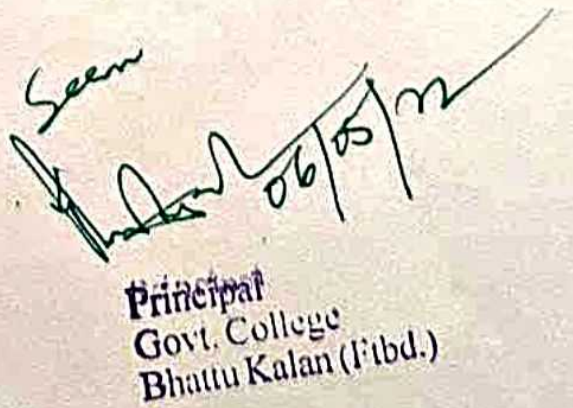 Seen
06/05/22
Principal
Govt. College
Bhattu Kalan (Ftbd.)